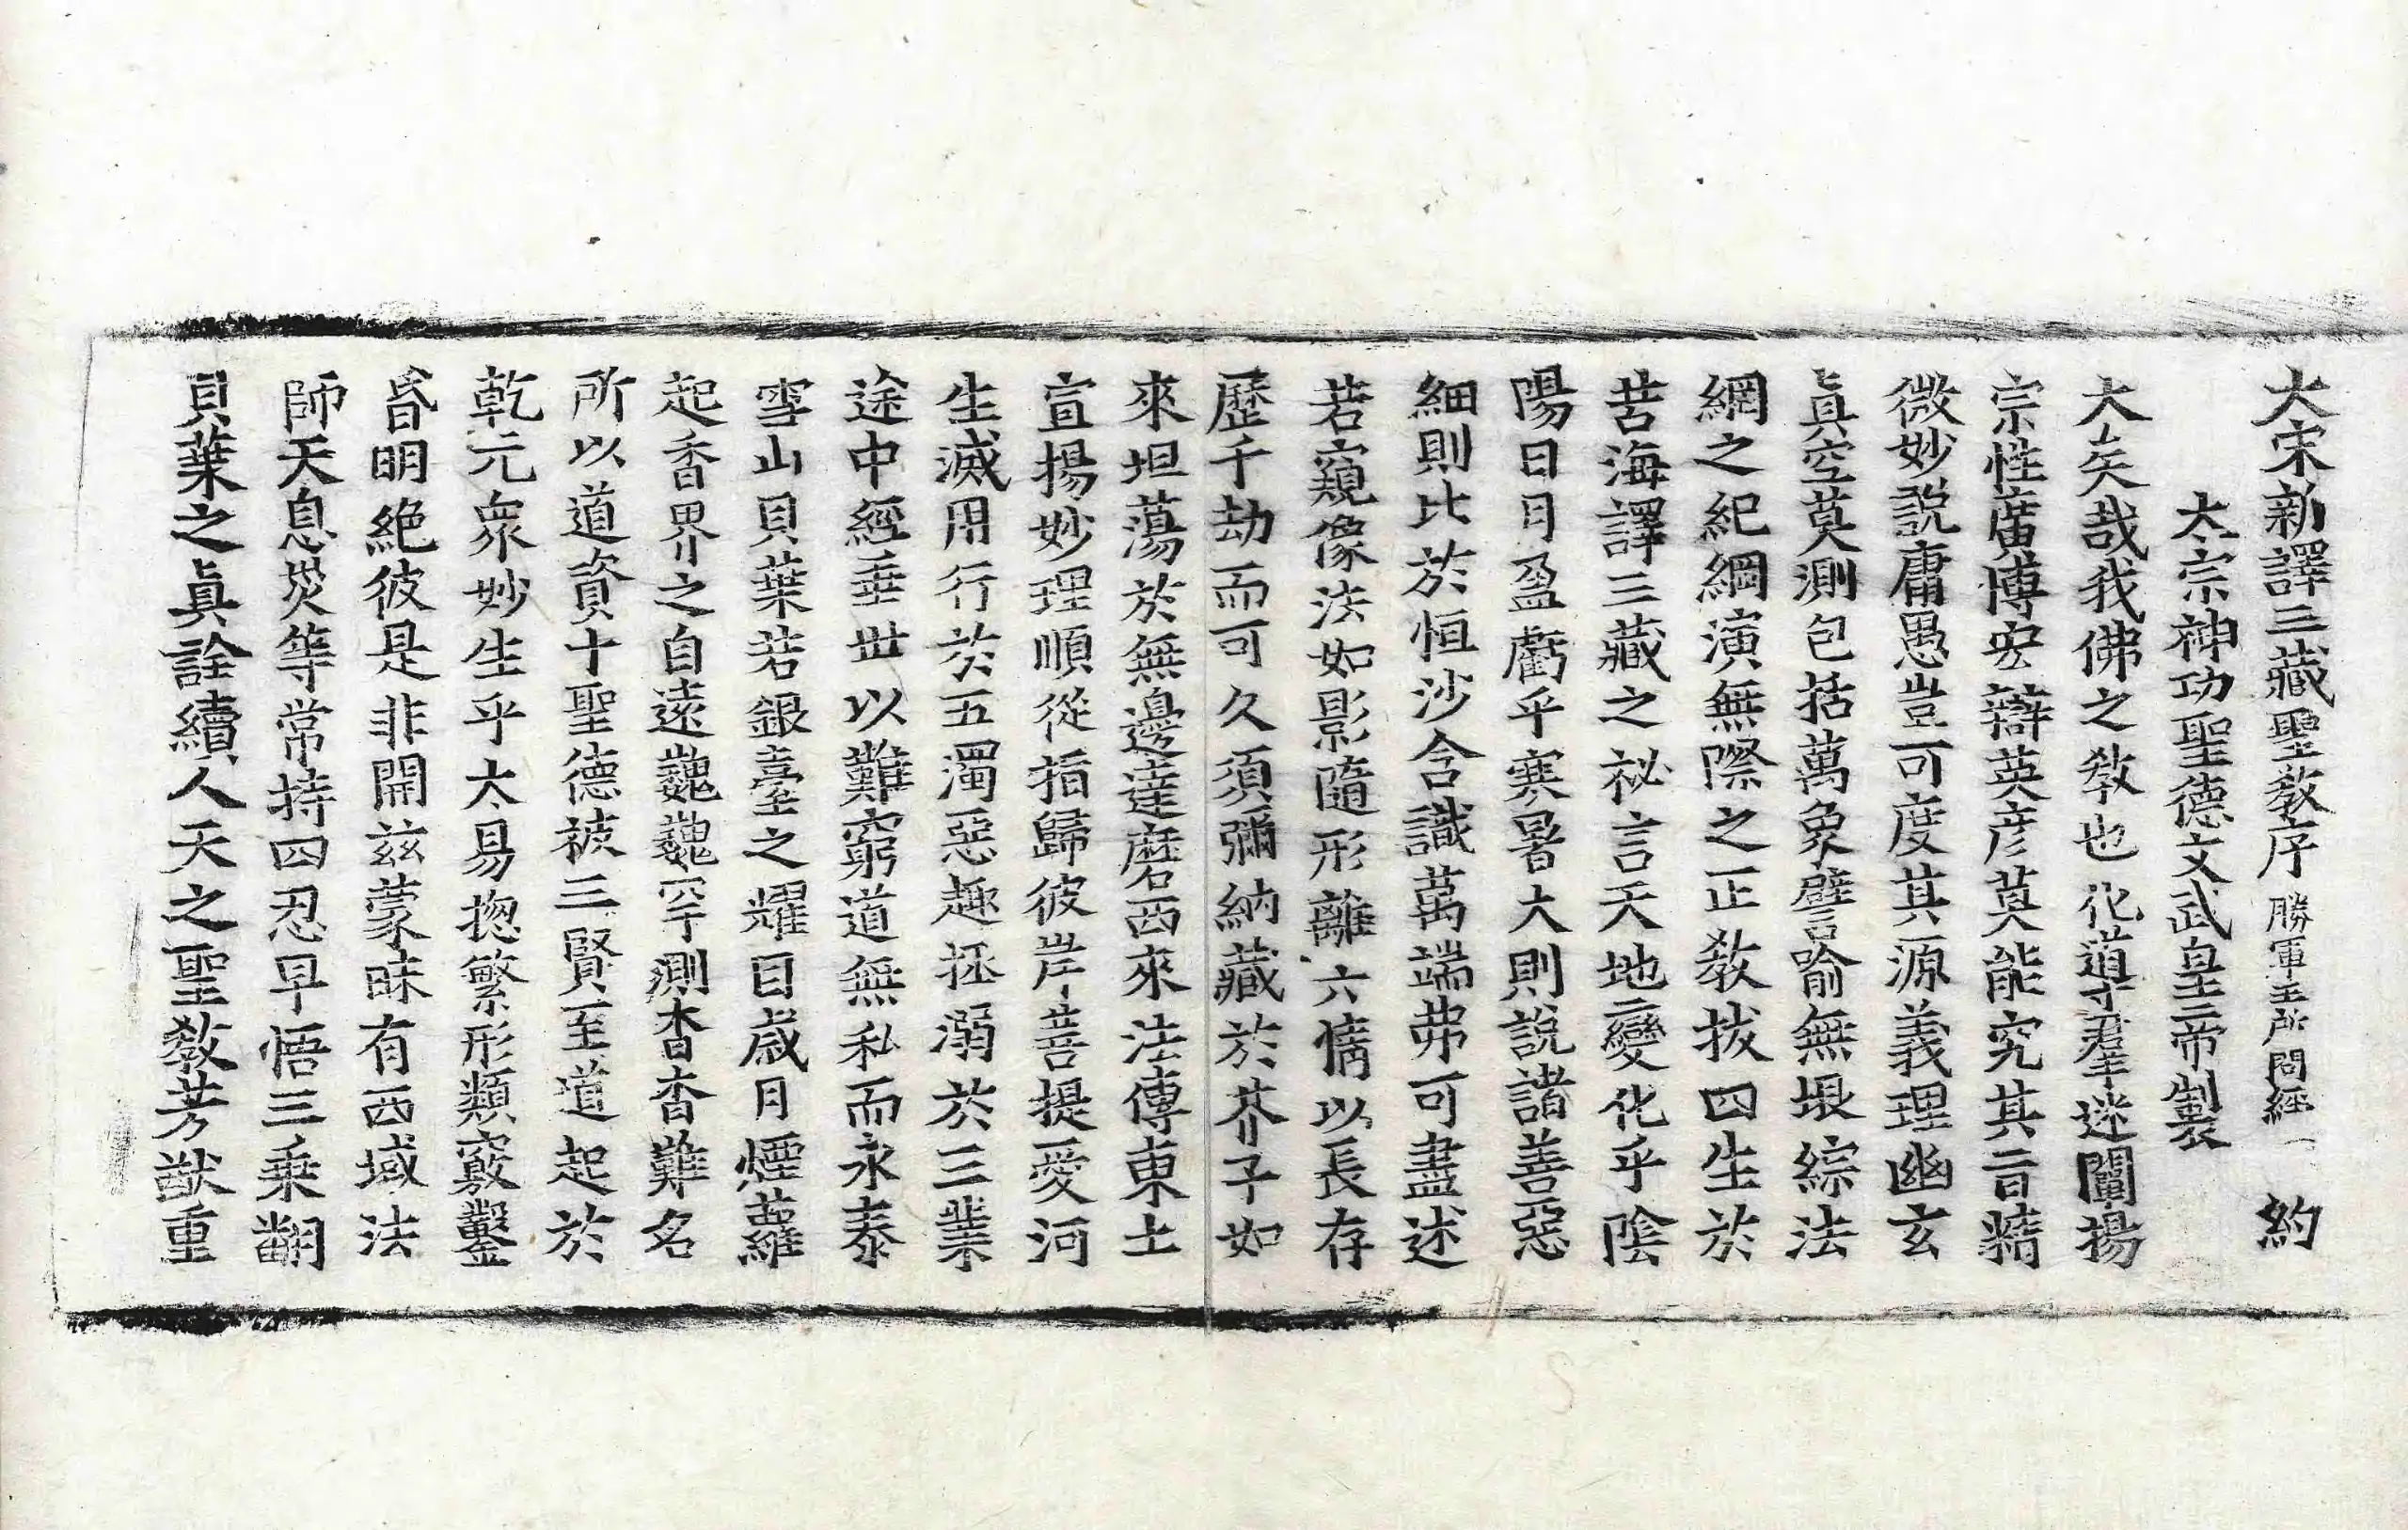 大宋新譯三藏聖敎序 勝軍王所問經 一 約
太宗神功聖德文武皇帝製
大矣哉我佛之敎也化道寸羣迷闡揚
宗性廣博宏辯英彦莫能究其旨精
微妙說庸愚豈可度其源義理幽玄
眞空莫測包括萬象譬喻無垠綜法
網之紀綱演無際之正敎拔四生於
苦海譯三藏之祕言天地變化乎陰
陽日月盈虧乎寒暑大則說諸善惡
細則比於恒沙含識萬端弗可盡述
若窺像法如影隨形離六情以長存
歷千劫而可久須彌納藏於芥子如
來坦蕩於無邊達磨西來法傳東土
宣揚妙理順從指歸彼岸菩提愛河
生滅用行於五濁惡趣拯溺於三業
途中經垂世以難窮道無私而永泰
雪山貝葉若銀臺之耀目歲月煙蘿
起香界之自遠巍巍罕測杳杳難名
所以道資十聖德被三賢至道起於
乾元衆妙生乎太易揔繁形類竅鑿
昏明絶彼是非開玆蒙昧有西域法
師天息災等常持四忍早悟三乘翻
貝葉之眞詮續人天之聖敎芳猷重